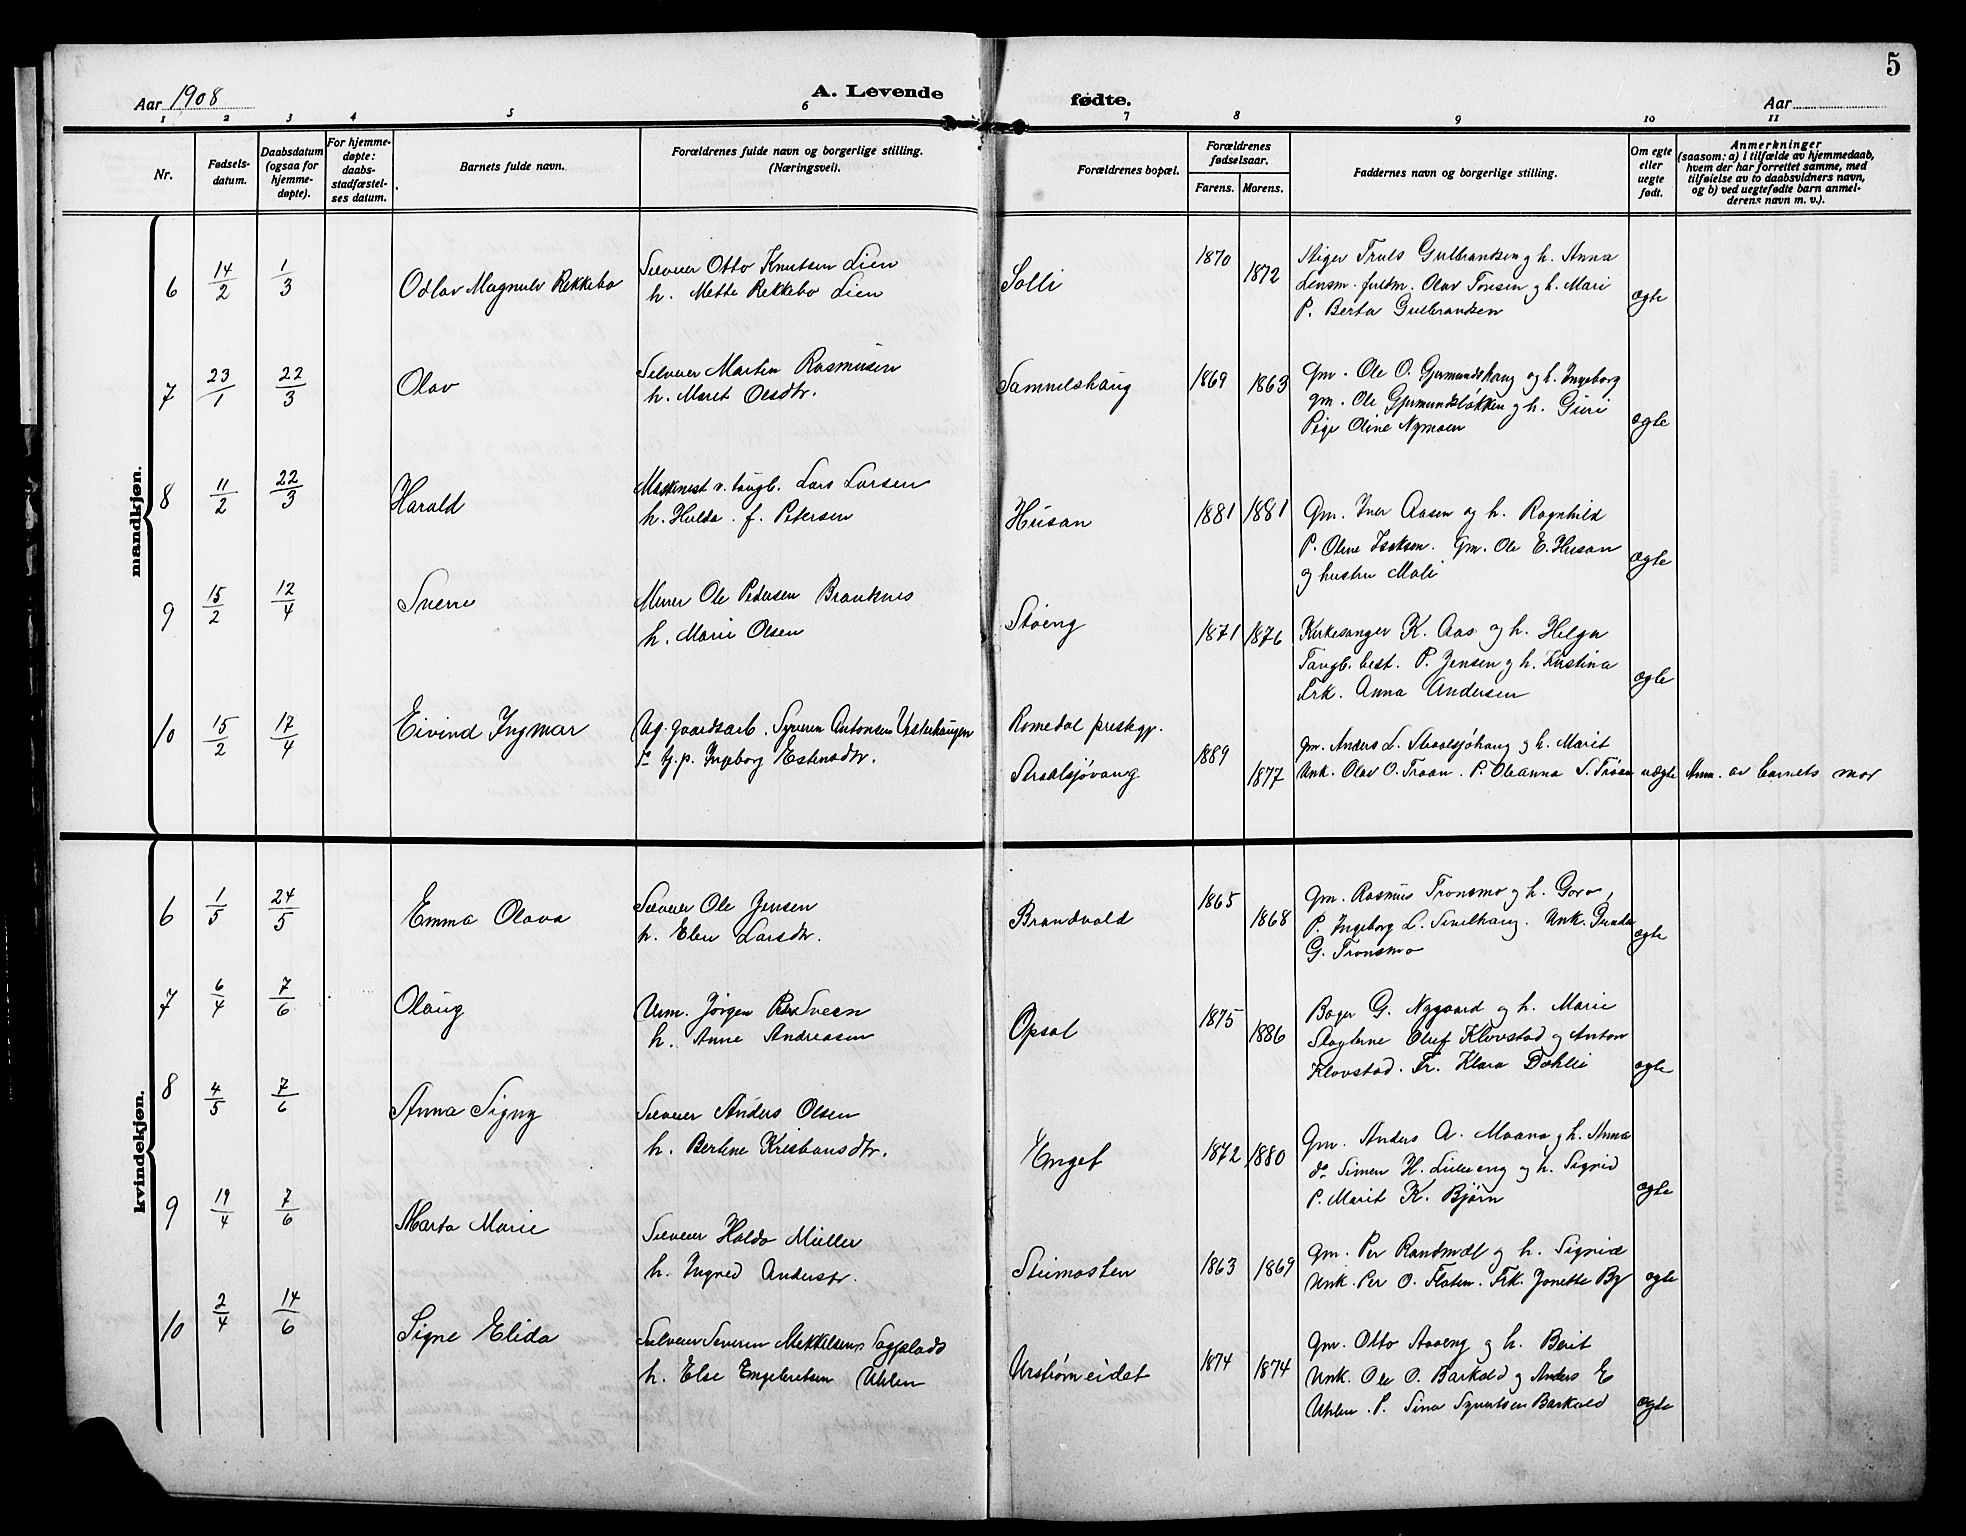 5
Aar 1908
A. Levende fødte.
Aar
1 2 3 4 5 6 7 8 9 10 11
Nr.
Fødsels-
datum.
Daabsdatum
(ogsaa for
hjemme-
døpte).
For hjemme-
døpte:
daabs-
stadfæstel-
ses datum.
Barnets fulde navn.
Forældrenes fulde navn og borgerlige stilling.
(Næringsvei).
Forældrenes bopæl.
Forældrenes
fødselsaar.
Farens. Morens.
Faddernes navn og borgerlige stilling.
Om egte
eller
uegte
født.
Anmerkninger
(saasom: a) i tilfælde av hjemmedaab,
hvem der har forrettet samme, med
tilføielse av to daabsvidners navn,
og b) ved uegtefødte barn anmel-
derens navn m. v.).
mandkjøn.
6 14/2 1/3 Odlav Magnulv Rekkebo
Selveier Otto Knutsen Lien
h. Mette Rekkebo Lien
Solli 1870 1872
Stiger Truls Gulbrandsen og h. Anna
Lensm. fuldm. Olav Tonsen og h. Mari
P. Berta Gulbrandsen
ægte
7 23/1 22/3 Olav
Selveier Martin Rasmusen
h. Maret Olsdtr.
Samuelshaug 1869 1863
Gm. Ole O. Gjermundshaug og h. Ingeborg
gm. Ole Gjermundsløkken og h. Guri
Pige Oline Nymoen
ægte
8 11/2 22/3 Harald
Maskinist v. taugb. Lars Larsen
h. Hulda f. Petersen
Husan 1881 1881
Gm. Iver Aasen og h. Ragnhild
P. Oline Isaksen. Gm. Ole E. Husan
og hustru Mali
ægte
9 15/2 12/4 Sverre
Murer Ole Pedersen Brauknes
h. Marie Olsen
Støeng 1871 1876
Kirkesanger K. Aas og h. Helga
Taugb. best. P. Jensen og h. Kristina
Frk. Anna Andersen
ægte
10 15/2 17/4 Eivind Ingmar
Ug. gaardsarb. Syveren Antonsen Vesterhaugen
P. Ingeborg Estensdtr.
Romedal prestegj.
Straalsjøvang
1889 1877
gm. Anders L. Straalsjøhaug og h. Marit
Unk. Olav O. Traan. P. Oleanna S. Trøan
uægte Anm. av barnets mor
kvindekjøn.
6 1/5 24/5 Emma Olava
Selveier Ole Jensen
h. Eben Larsdtr.
Brandvold 1865 1868
Gm. Rasmus Tronsmo og h. Goro,
P. Ingeborg L. Sivilhaug. Unk. Gunder
G. Tronsmo
ægte
7 6/4 7/6 Olaug
Urm. Jørgen Peder Sveen
h. Anne Andreasen
Opsal 1875 1886
Bager G. Nygaard og h. Marie
Slagterne Oluf Klovstad og Anton
Klovstad. Fr. Klara Dahlie
ægte
8 4/5 7/6 Anna Signy
Selveier Anders Olsen
h. Bertine Kristiansdtr.
Enget 1872 1880
Gm. Anders A. Moana og h. Anna
do Simen H. Lilleeng og h. Sigrid
P. Marit K. Bjørn
ægte
9 19/4 7/6 Marta Marie
Selveier Haldo Müller
h. Ingred Anderstr.
Steimosten 1863 1869
gm. Per Randmæl og h. Sigrid
Unk. Per O. Floten. Frk. Jonette By
ægte
10 2/4 14/6 Signe Elida
Selveier Severin Mikkelsens Sagplads
h. Else Engebretsen Uhlen
Urstrømeidet 1874 1874
Gm. Otto Aaseng og h. Berit
Unk. Ole O. Barkald og Anders E
Uhlen. P. Sina Syvertsen Barkald
ægte